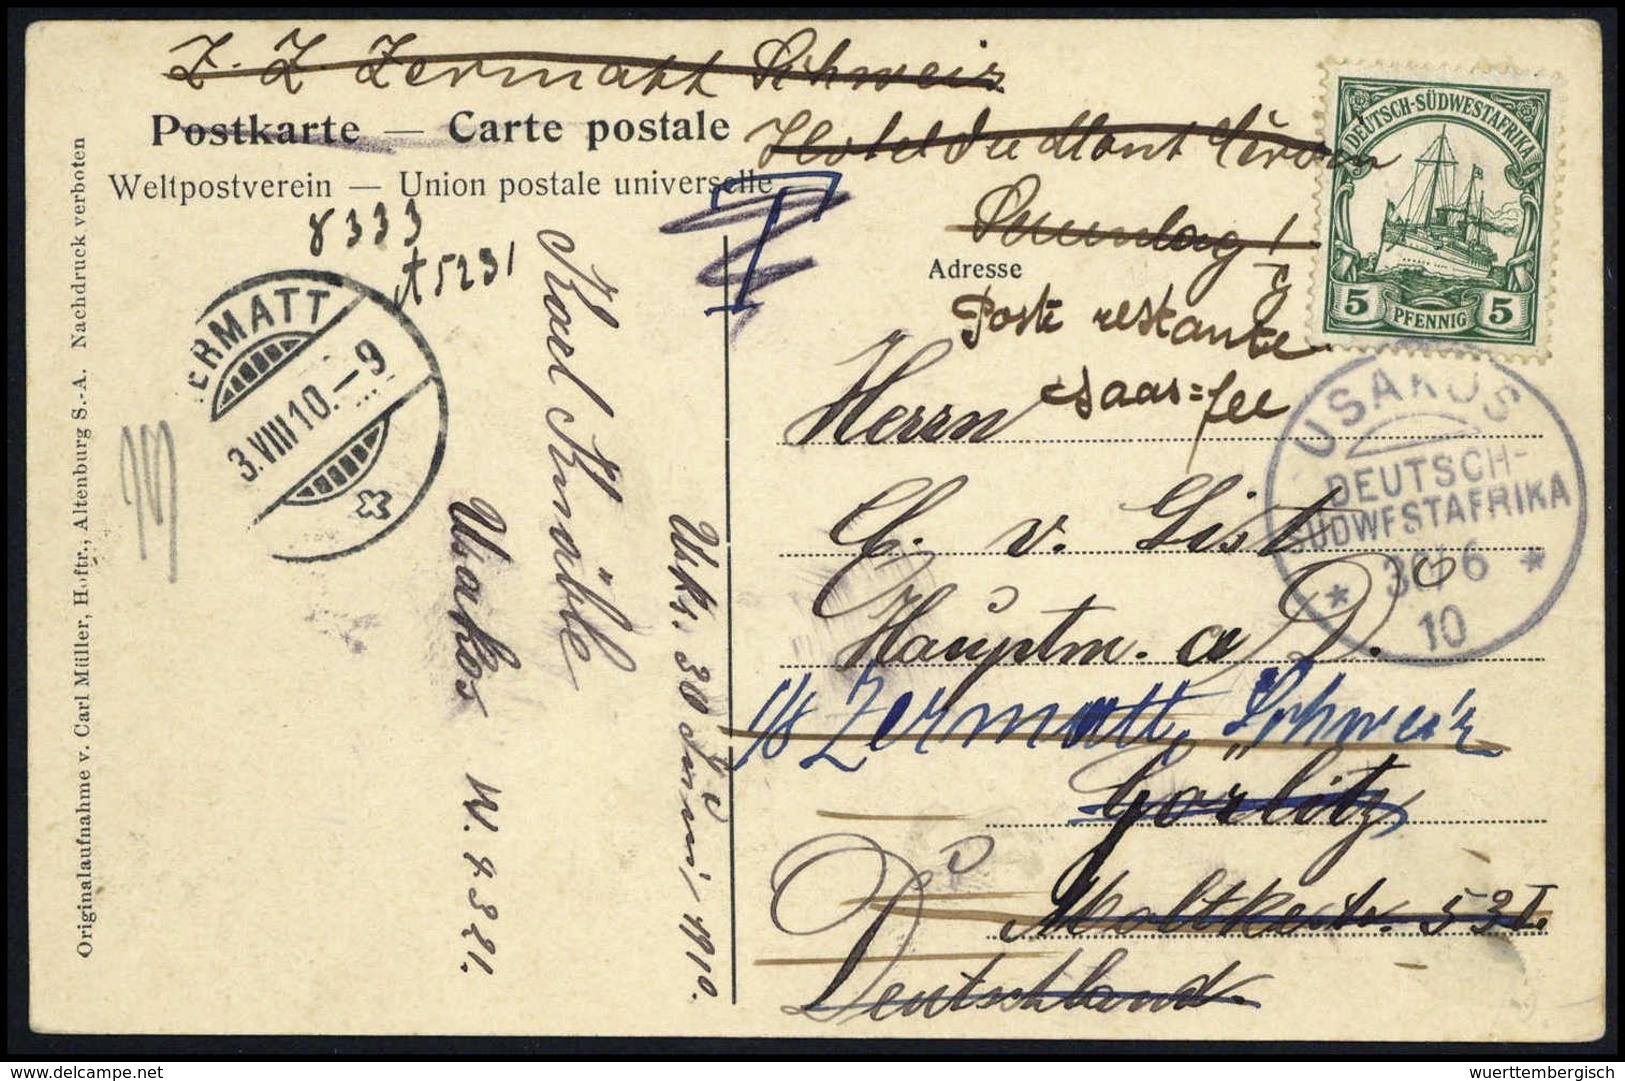 z. Z. Zermatt Schweiz
Postkarte — Carte postale
Hotel du Mont Cervin
Weltpostverein — Union postale universelle
T
8333
A5231
Adresse
Poste restante
Saas=fee
Herrn
C. v. List
Hauptm. a D.
z/Z Zermatt, Schweiz
Görlitz
Moltkestr. 53 I.
Deutschland.
DEUTSCH-SÜDWESTAFRIKA
5 PFENNIG 5
USAKOS
DEUTSCH-
SÜDWESTAFRIKA
* 30/6 *
10
ERMATT
3.VIII 10.–9
Karl Knäble
Usakos
W. 8321.
Usk. 30 Juni 1910.
Originalaufnahme v. Carl Müller, Hoftr., Altenburg S.-A. Nachdruck verboten
wuerttembergisch